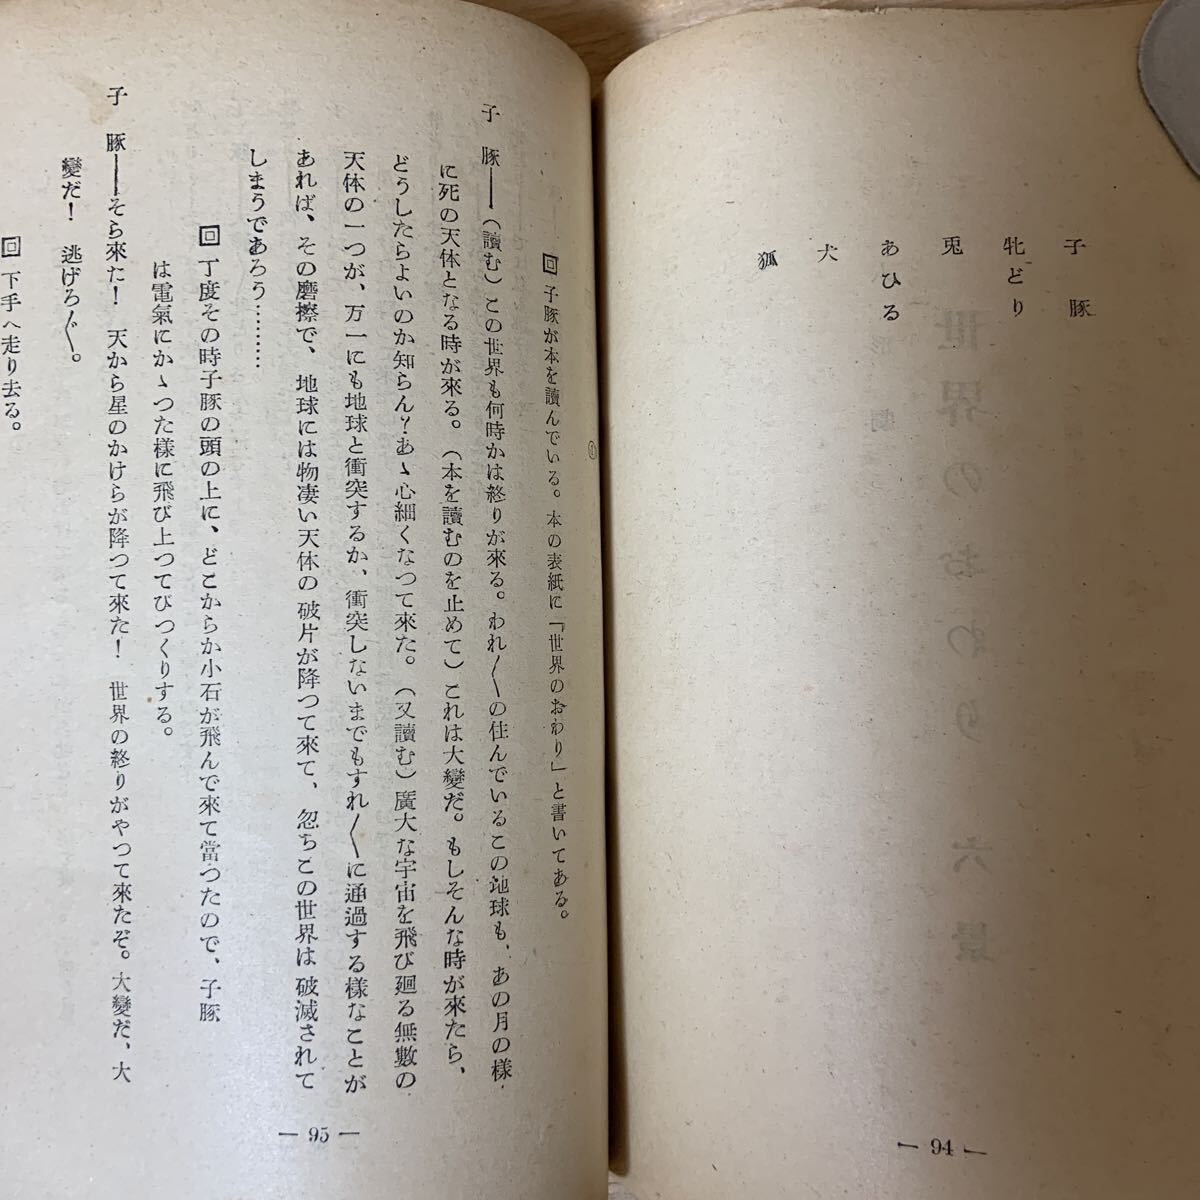 子豚
牝どり
兎
あひる
犬
狐
— 94 —
①
回 子豚が本を讀んでいる。本の表紙に「世界のおわり」と書いてある。
子 豚――（讀む）この世界も何時かは終りが來る。われ〳〵の住んでいるこの地球も、あの月の様
に死の天体となる時が來る。（本を讀むのを止めて）これは大變だ。もしそんな時が來たら、
どうしたらよいのか知らん？あゝ心細くなつて來た。（又讀む）廣大な宇宙を飛び廻る無數の
天体の一つが、万一にも地球と衝突するか、衝突しないまでもすれ〳〵に通過する様なことが
あれば、その磨擦で、地球には物凄い天体の破片が降つて來て、忽ちこの世界は破滅されて
しまうであろう………
回 丁度その時子豚の頭の上に、どこからか小石が飛んで來て當つたので、子豚
は電氣にかゝつた様に飛び上つてびつくりする。
子 豚――そら來た！ 天から星のかけらが降つて來た！ 世界の終りがやつて來たぞ。大變だ、大
變だ！ 逃げろ〳〵。
回 下手へ走り去る。
— 95 —